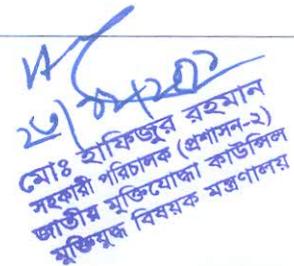 মোঃ হাফিজুর রহমান
সহকারী পরিচালক (প্রশাসন-২)
জাতীয় মুক্তিযোদ্ধা কাউন্সিল
মুক্তিযুদ্ধ বিষয়ক মন্ত্রণালয়